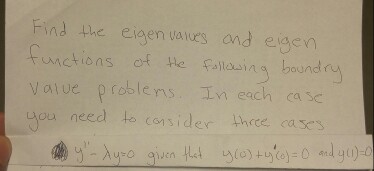 Find the eigenvalues and eigen
functions of the following boundry
value problems. In each case
you need to consider three cases
y'' - λy=0 given that y(0)+y'(0)=0 and y(1)=0